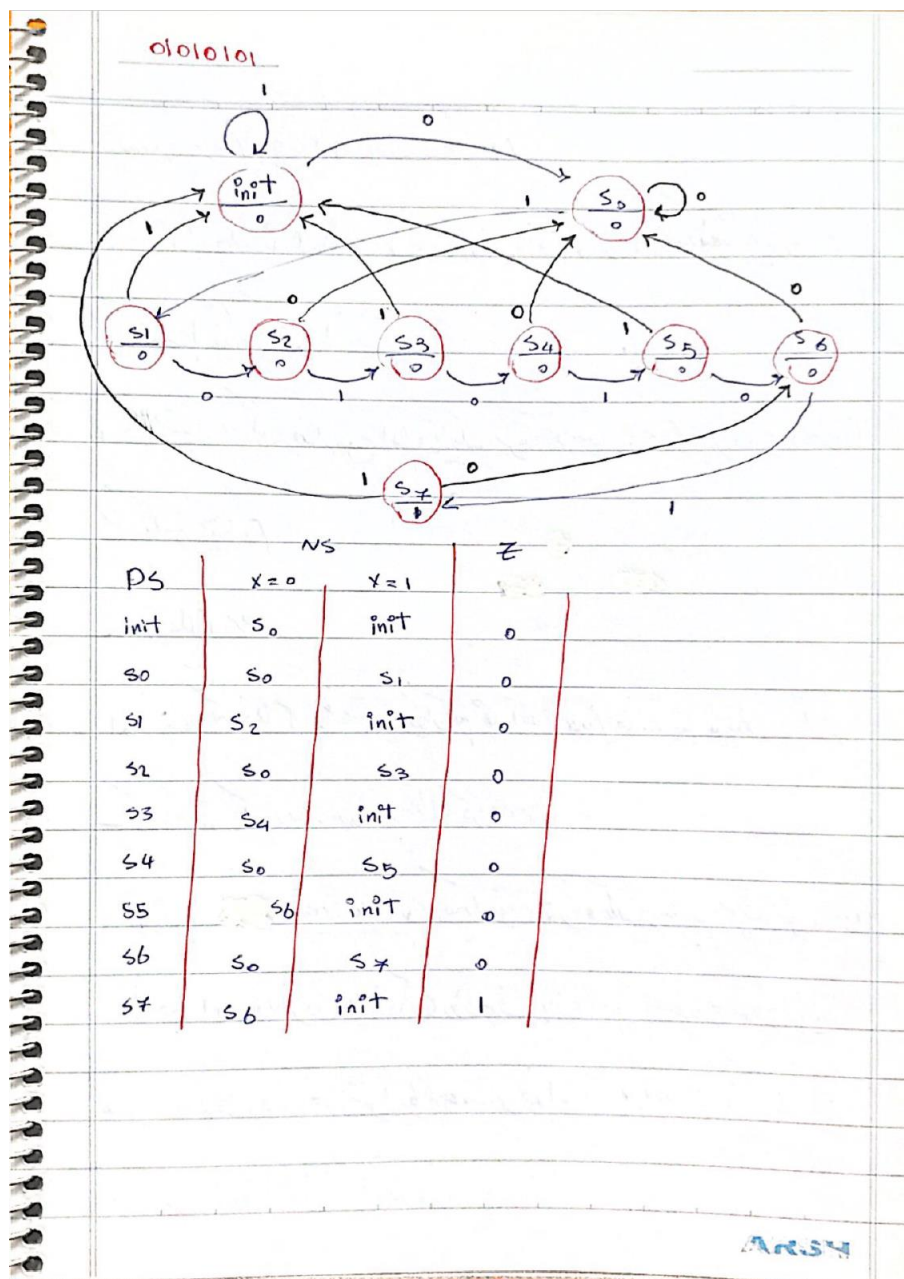 01010101
1
0
init
0
S0
0
0
1
1
0
1
0
1
0
S1
0
S2
0
S3
0
S4
0
S5
0
S6
0
0
1
0
1
0
1
0
1
S7
1
NS
Z
PS
x=0
x=1
init
S0
init
0
S0
S0
S1
0
S1
S2
init
0
S2
S0
S3
0
S3
S4
init
0
S4
S0
S5
0
S5
S6
init
0
S6
S0
S7
0
S7
S6
init
1